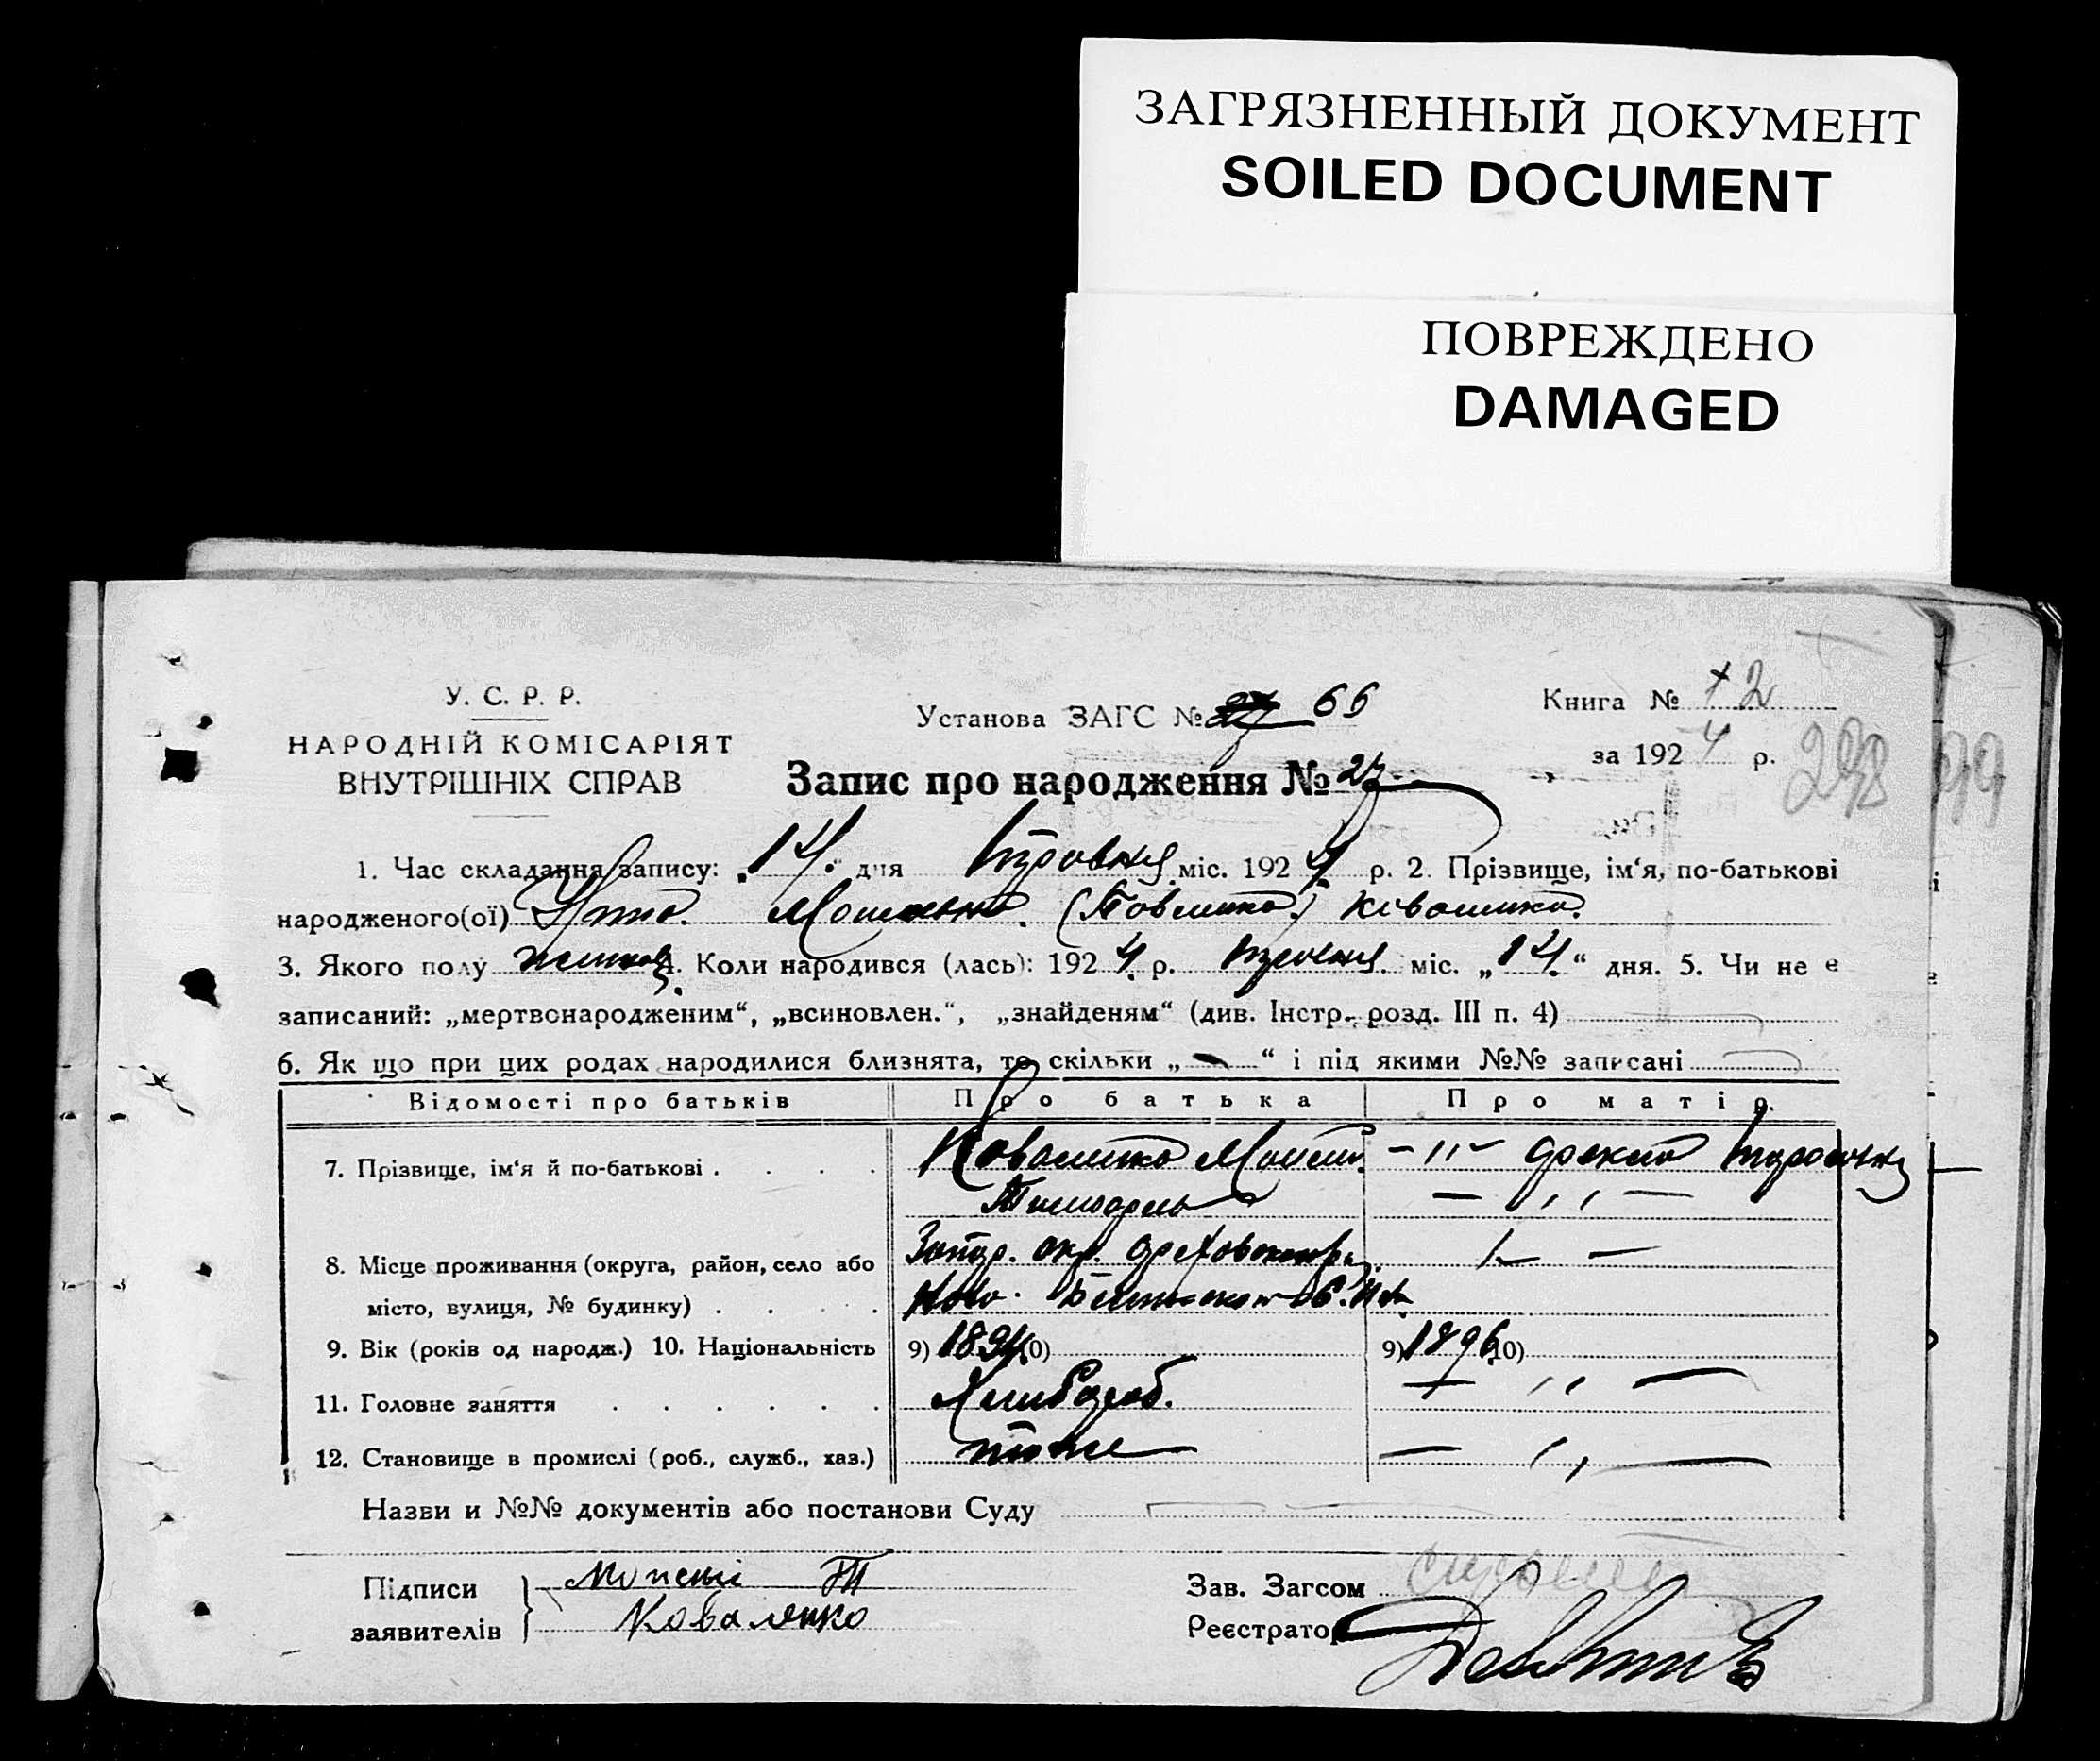 ЗАГРЯЗНЕННЫЙ ДОКУМЕНТ
SOILED DOCUMENT
ПОВРЕЖДЕНО
DAMAGED
У. С. Р. Р.
НАРОДНІЙ КОМІСАРІЯТ
ВНУТРІШНІХ СПРАВ
Установа ЗАГС № 66
Книга № 2
за 1924 р.
298 99
Запис про народження № 27
1. Час складання запису: „14“ дня Травня міс. 1924 р. 2. Прізвище, ім‘я, по-батькові
народженого(ої)
3. Якого полу 4. Коли народився (лась): 1924 р. травня міс. „14“ дня. 5. Чи не є
записаний: „мертвонародженим“, „всиновлен.“, „знайденям“ (див. Інстр. розд. III п. 4)
6. Як що при цих родах народилися близнята, то скільки „—“ і під якими №№ записані
Відомості про батьків Про батька Про матір.
7. Прізвище, ім‘я й по-батькові . . . . Коваленко Мойсей -"-
8. Місце проживання (округа, район, село або Запор. окр.
місто, вулиця, № будинку) . . . . Ново-
9. Вік (років од народж.) 10. Національність 9) 1894 10) 9) 1896 10)
11. Головне заняття . . . . . . Хлибороб. — ,, —
12. Становище в промислі (роб., служб., хаз.) тоже — ,, —
Назви и №№ документів або постанови Суду
Підписи заявителів } Мойсей Т
Коваленко
Зав. Загсом
Реєстратор